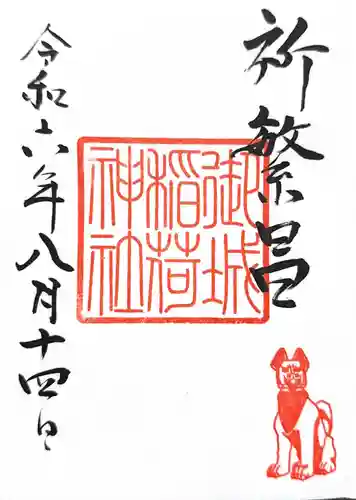 祈繁昌
御城
稲荷
神社
令和六年八月十四日